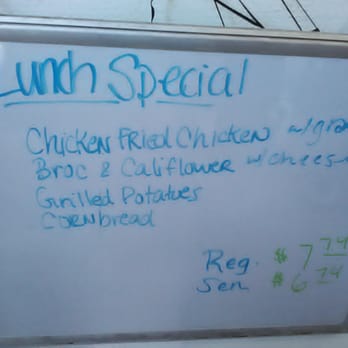 Lunch Special
Chicken Fried Chicken w/gra
Broc & Califlower w/chees
Grilled Potatoes
Cornbread
Reg. $7 74
Sen $6 74